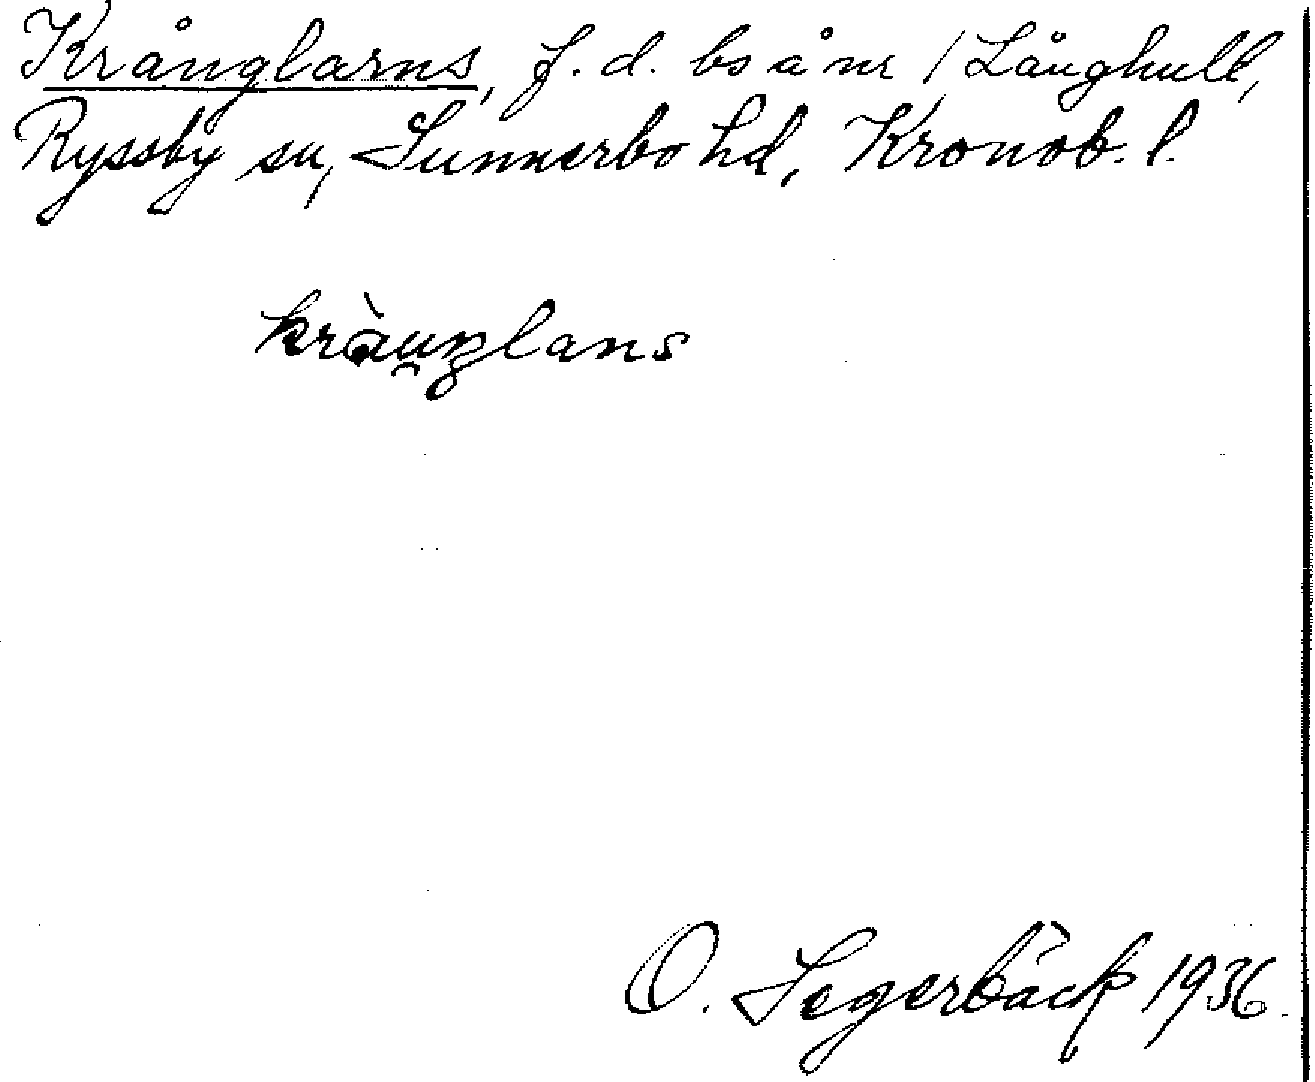 Krånglarns, f.d. bs å nr 1 Långhult,
Ryssby sn, Sunnerbo hd, Kronob. l.
kràu̯ŋlans
O. Segerbäck 1936.